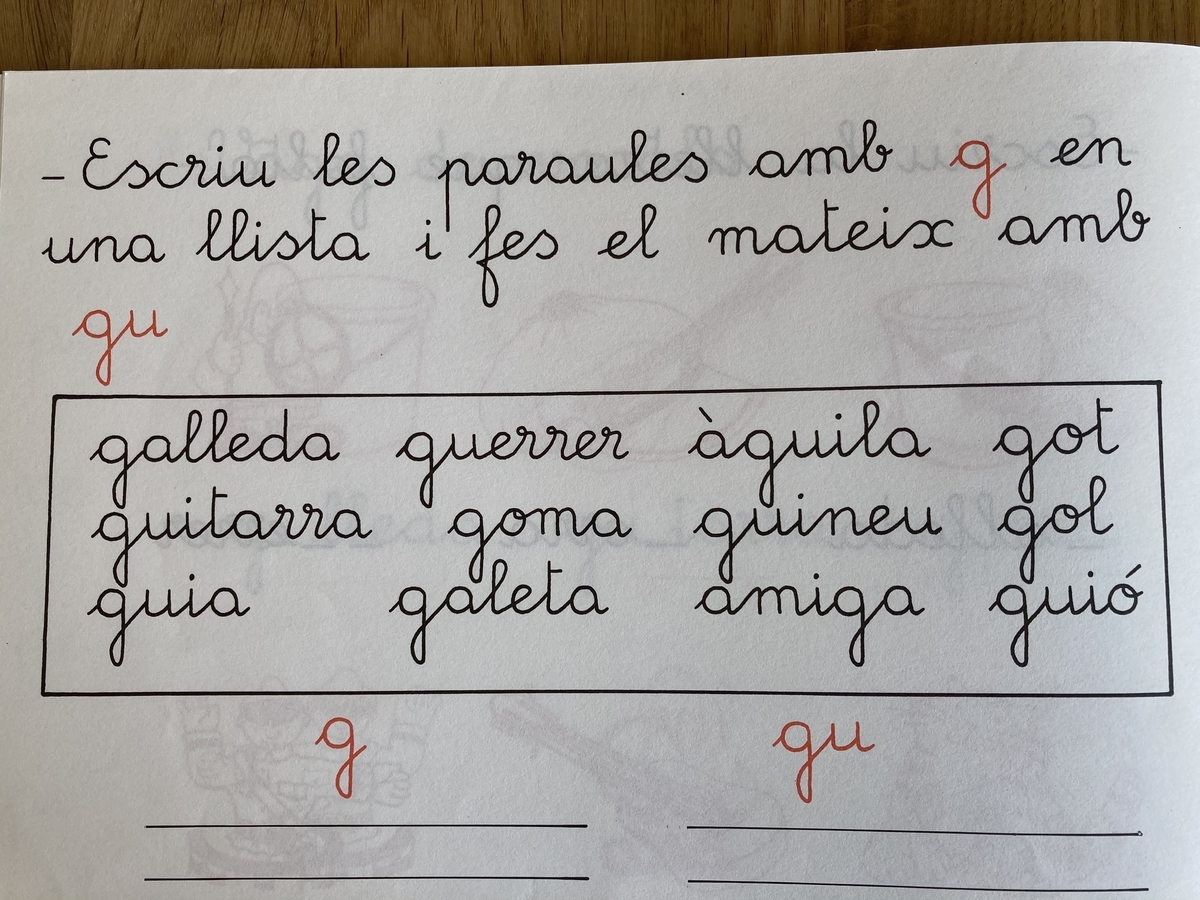 - Escriu les paraules amb g en
una llista i fes el mateix amb
gu
galleda guerrer àguila got
guitarra goma guineu gol
guia galeta amiga guió
g gu